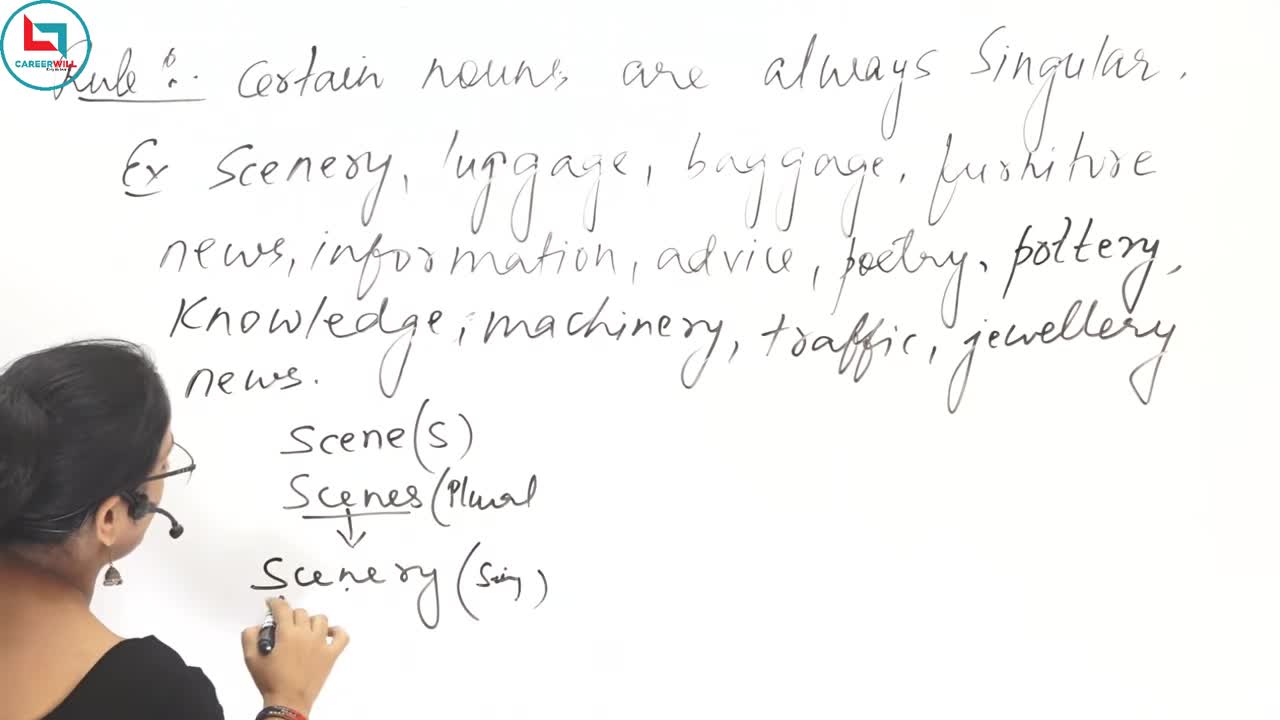 CAREERWILL
Rule :. Certain nouns are always Singular.
Ex Scenery, luggage, baggage, furniture
news, information, advice, poetry, pottery,
Knowledge, machinery, traffic, jewellery
news.
Scene(S)
Scenes(Plural
Scenery(Sing)